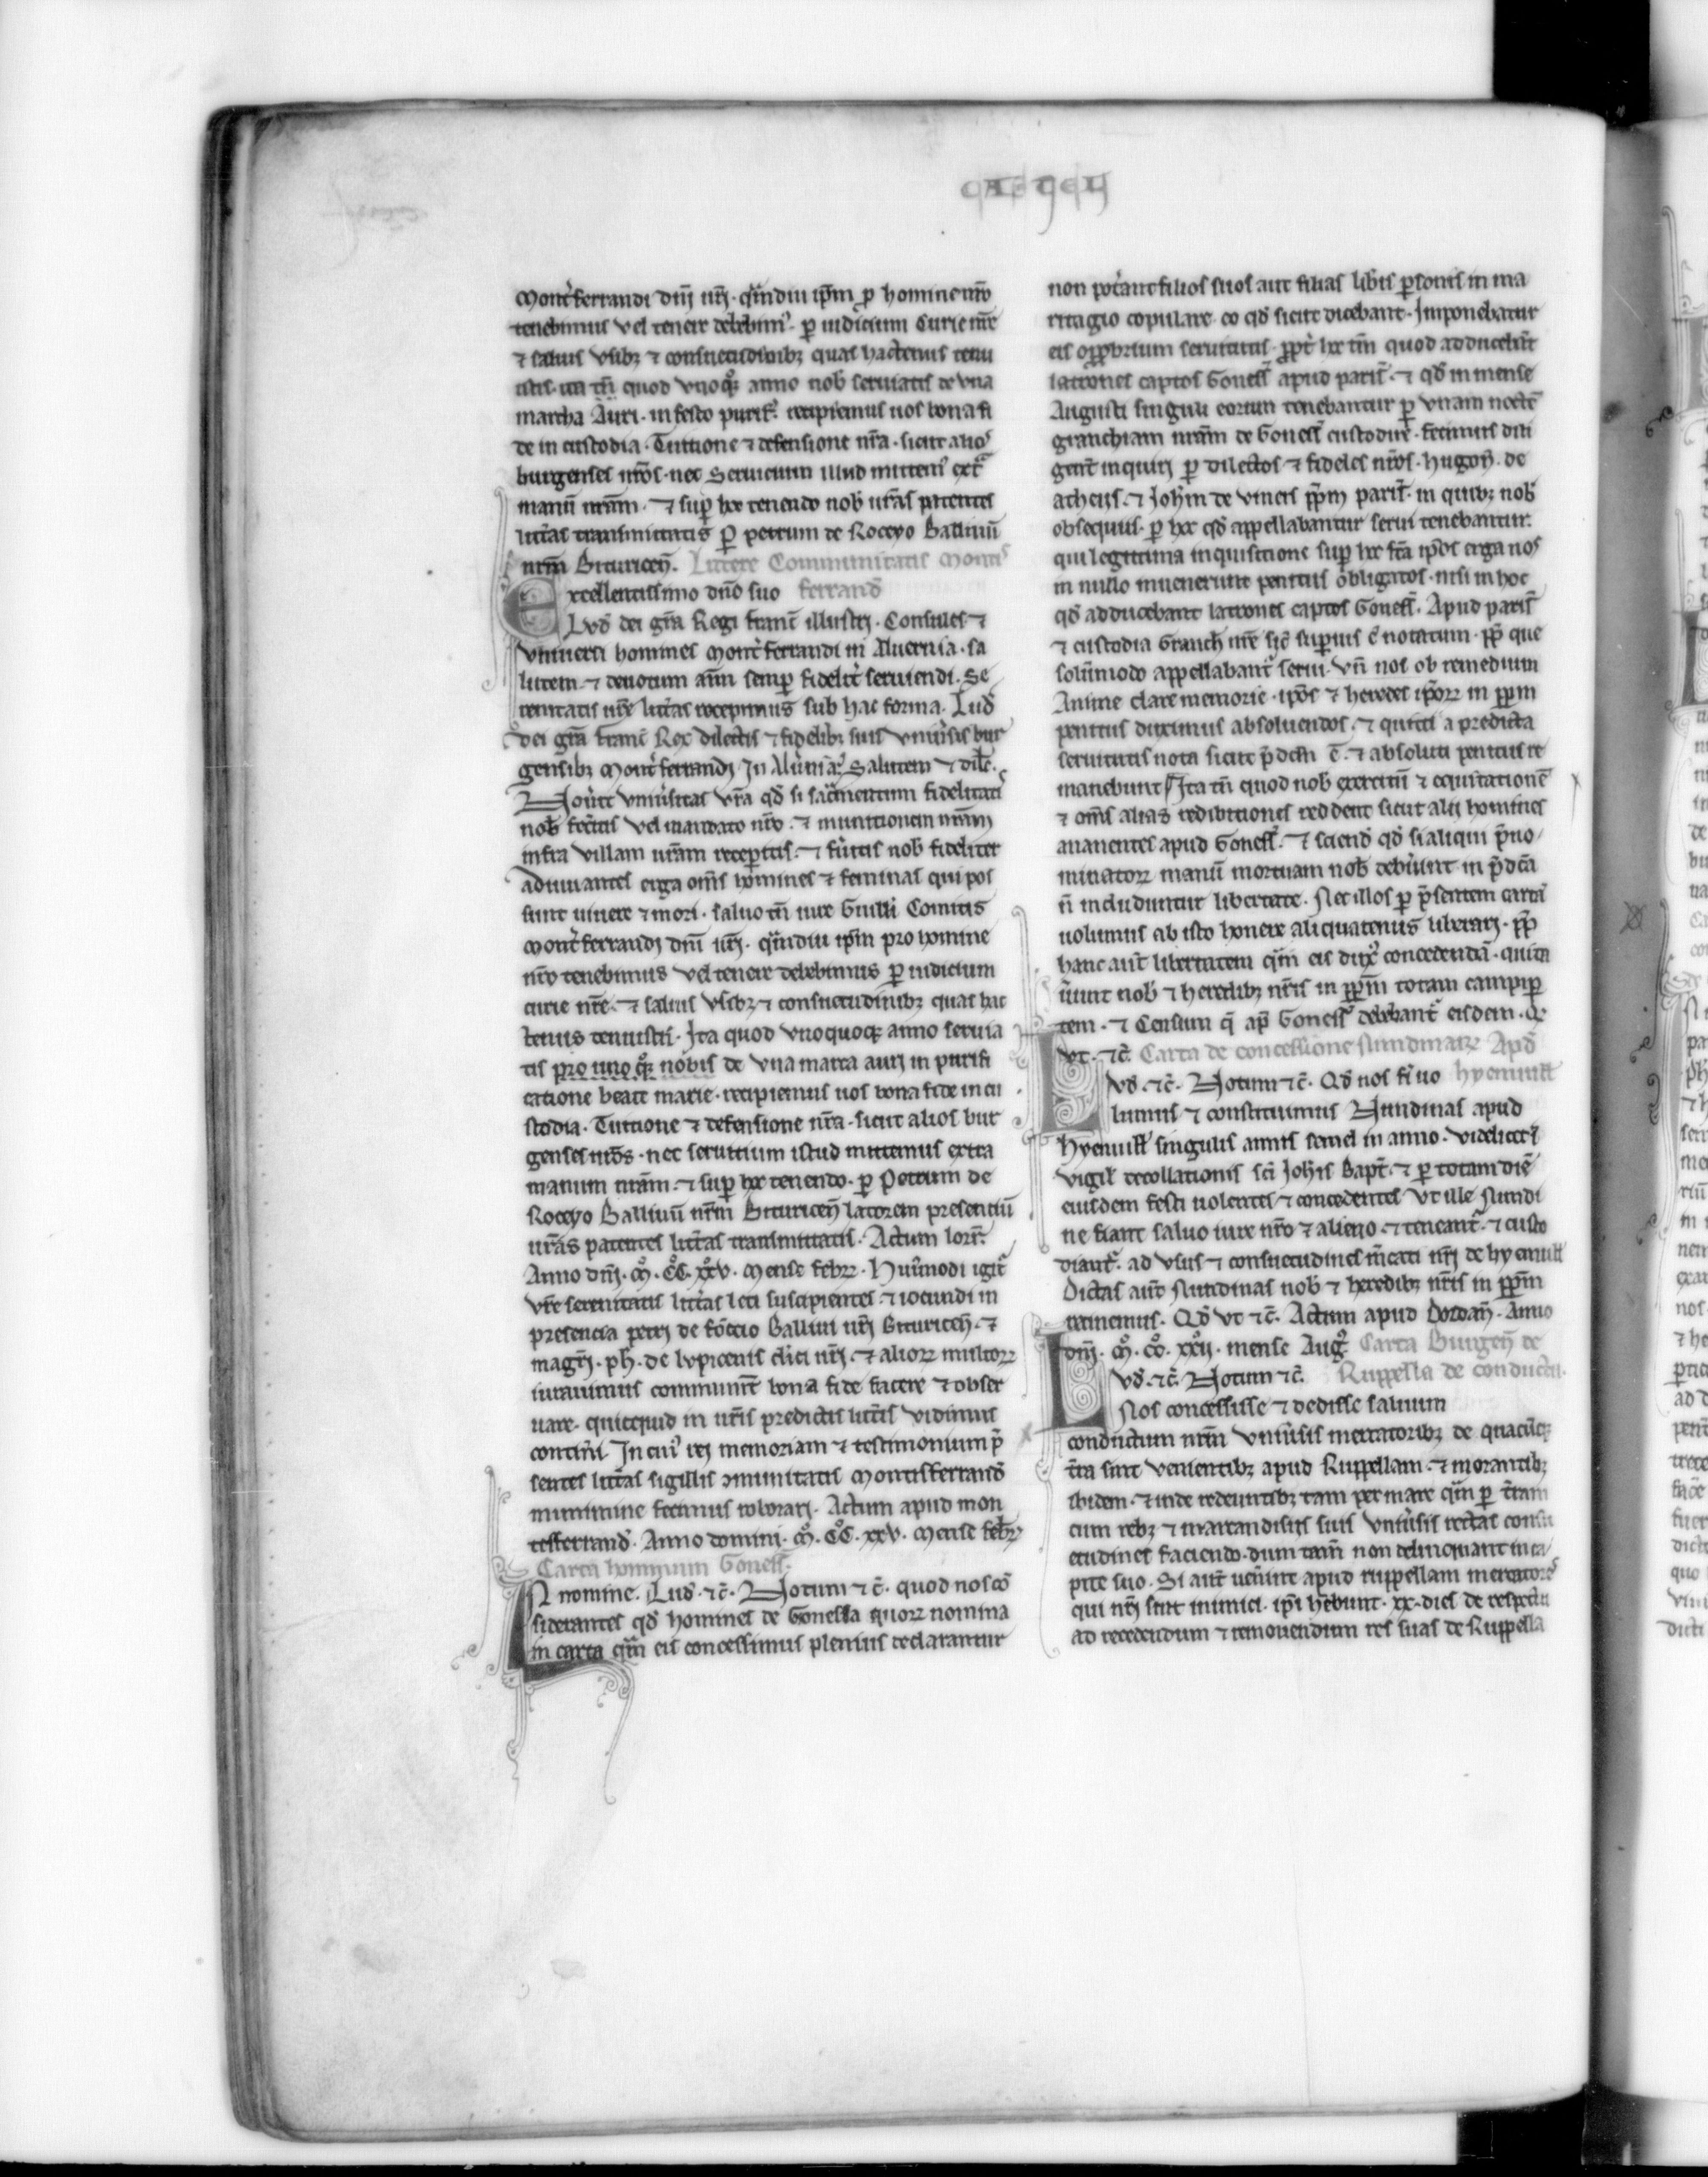 montferrandi dn̄i ur̄i. qm̄diu ip̄m p̱ homine nr̄o
tenebimus vel tenere debebim᷒. p̱ iudicium Curie nr̄e
⁊ saluis vsibꝫ ⁊ consuetudinibꝫ quas hactenus tenu
istis. ita tn̄ quod vnoqͦqꝫ anno nob̄ seruiatis de vna
marcha Auri. in festo purif̄. recipiemus uos bona fi
de in custodia. Tuitione ⁊ defensione nr̄a. sicut alios
burgenses nr̄os. nec Seruicium illud mittem᷒ extͣ
manū nr̄am. ⁊ sup̱ hoc tenendo nob̄ ur̄as patentes
litt̄as transmittatis P̱ petrum de Roceyo Balliuū
nr̄m Bituricen̄. Littere Communitatis Montis
Excellentissimo dn̄o suo ferrand̄
Lvd̄ dei gr̄a Regi franc̄ illustri. Consules ⁊
vniuersi homines mont̄ferrandi in Aluernia. sa
lutem. ⁊ deuotum an̄m semp̱ fidelit̄ seruiendi. Se
renitatis ur̄e litt̄as recepimus sub hac forma. Lud̄
dei gr̄a franc̄ Rex dilectis ⁊ fidelibꝫ suis vniu̓sis bur
gensibꝫ mont̄ferrandi In Alu̓niā Salutem ⁊ dil̄c.
Nou̓it vniu̓sitas vr̄a qd̄ si sac̄mentum fidelitatis
nob̄ fec̓itis vel mandato nr̄o. ⁊ munitionem nr̄am
infra villam ur̄am recep̱itis. ⁊ fu̓itis nob̄ fideliter
adiuuantes erga om̄s homines ⁊ feminas qui pos
sunt uiuere ⁊ mori. saluo tn̄ iure Guill̄i Comitis
mont̄ferrandi dn̄i ur̄i. qm̄diu ip̄m pro homine
nr̄o tenebimus vel tenere debebimus p̱ iudicium
curie nr̄e. ⁊ saluis vsibꝫ ⁊ consuetudinibꝫ quas hac
tenus tenuistis. Ita quod vnoquoqꝫ anno seruia
tis pro uno qͦqꝫ nobis de vna marca auri in purifi
catione beate marie. recipiemus uos bona fide in cu
stodia. Tuitione ⁊ defensione nr̄a. sicut alios bur
genses nr̄os. nec seruitium istud mittemus extra
manum nr̄am. ⁊ sup̱ hoc tenendo. p̱ Petrum de
Roceyo Balliuū nr̄m Bituricen̄ latorem presentiū
ur̄as patentes litt̄as transmittatis. Actum lorr̄.
Anno dn̄i. mͦ. CCͦ. xxͦv. Mense febr̄. Hui᷒modi igit̄
vr̄e serenitatis litt̄as leti suscipientes. ⁊ iocundi in
presencia petri de Roceio Balliui ur̄i Bituricen̄. ⁊
magr̄i. ph̄. de lupicenis cl̄ici ur̄i. ⁊ alioꝝ multoꝝ
iurauimus communit̄ bona fide facere ⁊ obser
uare. quicquid in ur̄is predictis litt̄is vidimus
contin̄i. In cui᷒ rei memoriam ⁊ testimonium p̄
sentes litt̄as sigillis ꝯmunitatis Montisferrand̄
munimine fecimus roborari. Actum apud mon
tesferrand̄. Anno domini. mͦ. CCͦ. xxv. Mense febr̄
Carta hominum Goness̄.
IN nomine. Lud̄. ⁊c̄. Notum ⁊c̄. quod nos cō
siderantes qd̄ homines de Gonessa quoꝝ nomina
in carta qm̄ eis concessimus plenius declarantur
non pot̓ant filios suos aut filias lib̓is p̱sonis in ma
ritagio copulare. eo qd̄ sicut dicebant. Imponebatur
eis opprobrium seruitutis. propt̓ hoc tm̄ quod adducebāt
latrones captos Goness̄ apud paris̄. ⁊ qd̄ in mense
Augusti singuli eorum tenebantur p̱ vnam noctē
granchiam nr̄am de Goness̄ custodire. fecimus dili
gent̓ inquiri p̱ dilectos ⁊ fideles nr̄os. hugon̄. de
atheiis. ⁊ Joh̄m de vineis p̄p̄m paris̄. in quibꝫ nob̄
obsequiis. p̱ hoc qd̄ appellabantur serui tenebantur.
qui legittima inquisitione sup̱ hoc fc̄a ip̄os erga nos
in nullo inuenerunt penitus obligatos. nisi in hoc
qd̄ adducebant latrones captos Goness̄. Apud paris̄
⁊ custodia Granch̄ nr̄e sic̄ sup̱ius ē notatum. pp̄ que
solūmodo appellabant̓ serui. Vn̄ nos ob remedium
Anime clare memorie. ip̄os ⁊ heredes ip̄oꝝ in pp̄m
penitus duximus absoluendos. ⁊ quitti a predicta
seruitutis nota sicut p̄dcm̄ ē. ⁊ absoluti penitus re
manebunt Ita tn̄ quod nob̄ exercitū ⁊ equitationē
⁊ om̄s alias redibitiones reddent sicut alij homines
manentes apud Goness̄. ⁊ sciend̄ qd̄ si aliqui p̄no
minatoꝝ manū mortuam nob̄ debu̓unt in p̄dc̄a
n̄ includuntur libertate. Nec illos p̱ p̄sentem cartā
uolumus ab isto honere aliquatenus liberari. pp̄
hanc aut̄ libertatem qm̄ eis dux̓ concedendā. quita
u̓unt nob̄ ⁊ heredibꝫ nr̄is in pp̄m totam campip̱
tem. ⁊ Censum q̄ ap̄ Goness̄ debebant̓ eisdem. Qd̄
vt. ⁊c̄. Carta de concessione Nundinaꝝ Apd̄
Lvd̄. ⁊c̄. Notum ⁊c̄. Qd̄ nos si uo hyenuill̄
lumus ⁊ constituimus Nundinas apud
Hyenuill̄ singulis annis semel in anno. videlicet ī
vigil̄ decollationis sc̄i Joh̄is Bapt̄. ⁊ p̱ totam diē
eiusdem festi uolentes ⁊ concedentes vt ille Nundi
ne fiant saluo iure nr̄o ⁊ alieno. ⁊ teneant̓. ⁊ custo
diant̓. ad vsus ⁊ consuetudines m̓cati nr̄i de hyenuill̄
Dictas aut̄ Nundinas nob̄ ⁊ heredibꝫ nr̄is in pp̄m
retinemus. Qd̄ vt ⁊c̄. Actum apud Dordan̄. Anno
dn̄i. mͦ. ccͦ. xxͦij. mense Aug̓. Carta Burgen̄ de
Lvd̄. ⁊c̄. Notum ⁊c̄. Ruppella de conductu.
Nos concessisse ⁊ dedisse saluum
conductum nr̄m vniu̓sis mercatoribꝫ de quacūqꝫ
t̓ra sint venientibꝫ apud Ruppellam. ⁊ morantibꝫ
ibidem. ⁊ inde redeuntibꝫ tam per mare qm̄ p̱ t̓ram
cum rebꝫ ⁊ marcandisiis suis vniu̓sis rectas consu
etudines faciendo. dum tam̄ non delinquant in ca
pite suo. Si aut̄ uen̓int apud ruppellam mercatores
qui nr̄i sint inimici. ip̄i h̄ebunt. xx. dies de respectu
ad recedendum ⁊ remouendum res suas de Ruppella